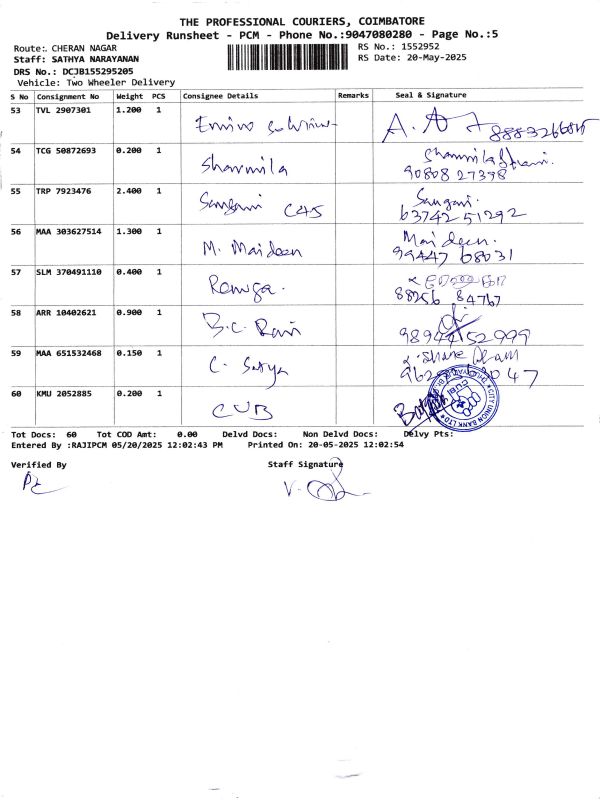 THE PROFESSIONAL COURIERS, COIMBATORE
Delivery Runsheet - PCM - Phone No.:9047080280 - Page No.:5
Route:. CHERAN NAGAR
RS No.: 1552952
Staff: SATHYA NARAYANAN
RS Date: 20-May-2025
DRS No.: DCJB155295205
Vehicle: Two Wheeler Delivery
S No Consignment No Weight PCS Consignee Details Remarks Seal & Signature
53 TVL 2907301 1.200 1
54 TCG 50872693 0.200 1 Sharmila Sharmila
90808 27338
55 TRP 7923476 2.400 1 Sangavi Sangavi.
63742 51292
56 MAA 303627514 1.300 1 M. Maideen Maideen.
99447 68031
57 SLM 370491110 0.400 1 Renuga.
88256 84767
58 ARR 10402621 0.900 1 B.C. Ravi
59 MAA 651532468 0.150 1 C. Satya
60 KMU 2052885 0.200 1 CUB
CITY UNION BANK LTD
CUB
Tot Docs: 60 Tot COD Amt: 0.00 Delvd Docs: Non Delvd Docs: Delvy Pts:
Entered By :RAJIPCM 05/20/2025 12:02:43 PM Printed On: 20-05-2025 12:02:54
Verified By Staff Signature